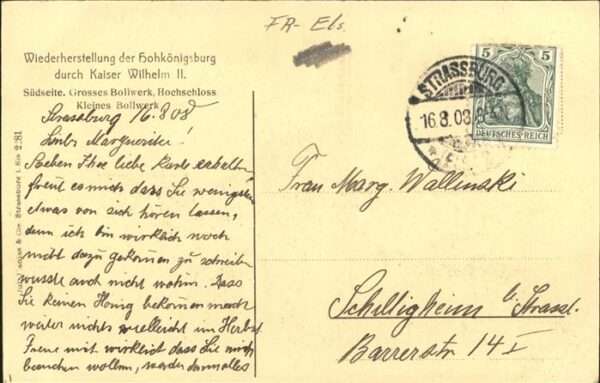 FR-Els.
Wiederherstellung der Hohkönigsburg
durch Kaiser Wilhelm II.
Südseite. Grosses Bollwerk, Hochschloss
Kleines Bollwerk
Strassburg 16.8.08
Liebe Marguerite!
Soeben Ihre liebe Karte erhalten
freut es mich dass Sie wenigstens
etwas von sich hören lassen,
denn ich bin wirklich noch
nicht dazu gekommen zu schreiben
wusste auch nicht wohin. Dass
Sie keinen Honig bekommen macht
weiter nichts vielleicht im Herbst.
Freue mich wirklich dass Sie mich
besuchen wollen, werde dann alles
5 5
DEUTSCHES REICH
STRASSBURG
16.8.08.
Frau Marg. Wallenski
Schiltigheim b. Strassb.
Barrerstr 14 I